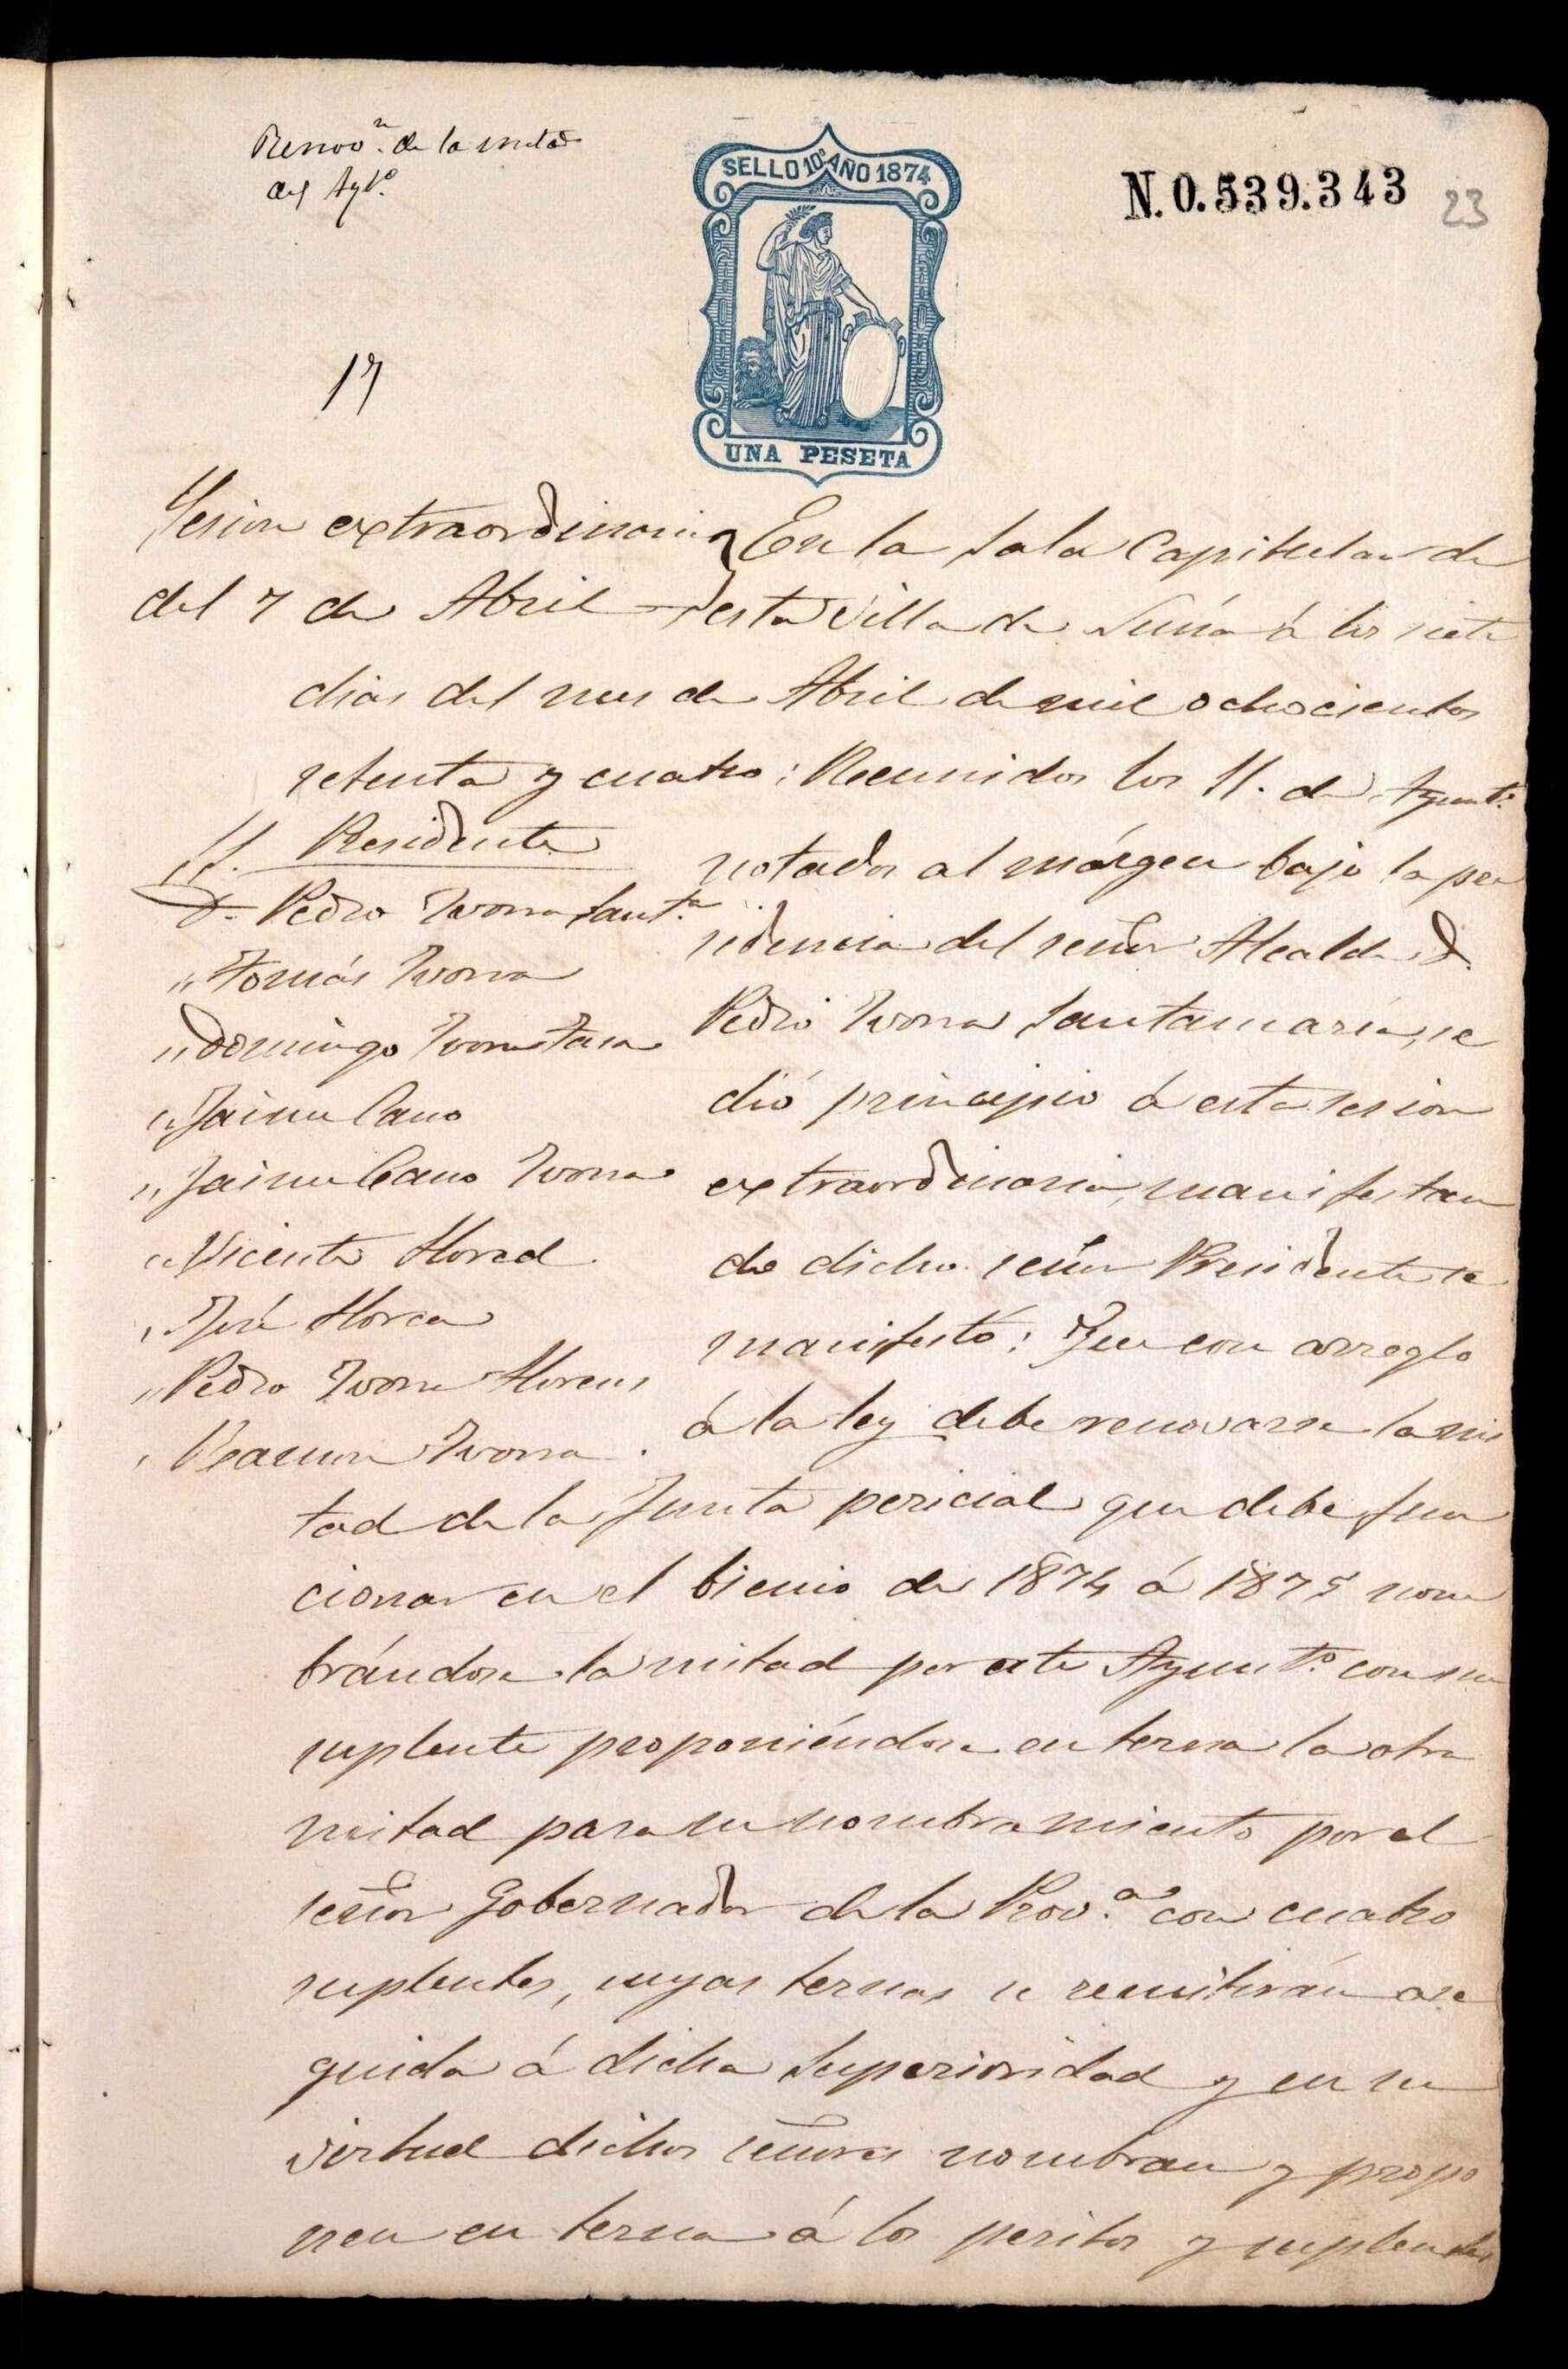 Renov.n de la mitad
del Aytº.
SELLO 10º AÑO 1874
UNA PESETA
N. 0.539.343
23
17
Sesion extraordinaria
del 7 de Abril
En la Sala Capitular de
esta Villa de á los siete
dias del mes de Abril de mil ochocientos
setenta y cuatro: Reunidos los SS. de Ayunt.º
SS. Presidente
D. Pedro Ivorra Sant.ª
" Tomás Ivorra
" Domingo Ivorra
" Jaime Cano
" Jaime Cano Ivorra
" Vicente Llored
" José Llorca
" Pedro Ivorra Llorens
" Ramon Ivorra.
notados al márgen bajo la pre
sidencia del señor Alcalde D.
Pedro Ivorra Santamaría, se
dió principio á esta sesion
extraordinaria, manifestan
do dicho señor Presidente se
manifestó: Que con arreglo
á la ley debe renovarse la mi
tad de la Junta pericial que debe fun
cionar en el bienio de 1874 á 1875 nom
brándose la mitad por este Ayunt.º con su
suplente proponiéndose en terna la otra
mitad para su nombramiento por el
señor Gobernador de la Prov.ª con cuatro
suplentes, cuyas ternas se remitirán ase
guida á dicha Superioridad y en su
virtud dichos señores nombran y propo
nen en terna á los peritos y suplentes